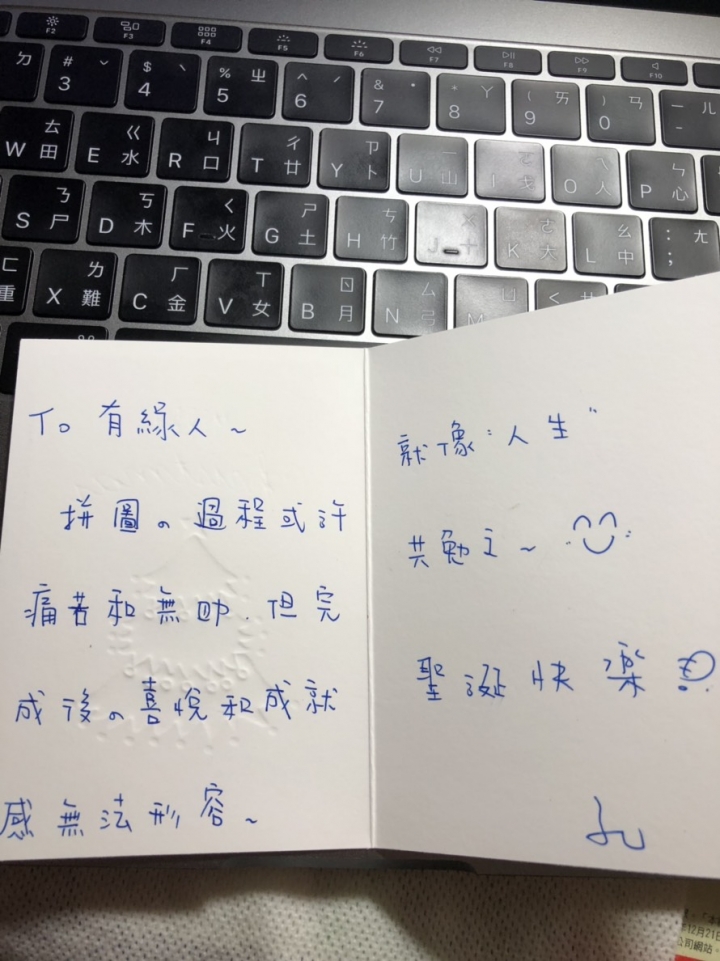 F2 F3 F4 F5 F6 F7 F8 F9 F10
ㄉ # 3 ˇ $ 4 ˋ % 5 ㄓ ^ 6 ˊ & 7 ˙ * 8 ㄚ ( 9 ㄞ ) 0 ㄢ - ㄦ
W ㄊ 田 E ㄍ 水 R ㄐ 口 T ㄔ 廿 Y ㄗ 卜 U ㄧ 山 I ㄛ 戈 O ㄟ 人 P ㄣ 心
S ㄋ 尸 D ㄎ 木 F ㄑ 火 G ㄕ 土 H ㄘ 竹 J ㄨ 十 K ㄜ 大 L ㄠ 中 : ; ㄤ
ㄈ 重 X ㄌ 難 C ㄏ 金 V ㄒ 女 B ㄖ 月 N ㄙ 弓 M ㄩ < ㄝ
To 有緣人~
拼圖の過程或許
痛苦和無助.但完
成後の喜悅和成就
感無法形容~
就像"人生"
共勉之~
聖誕快樂!
12月21日
公司網站、